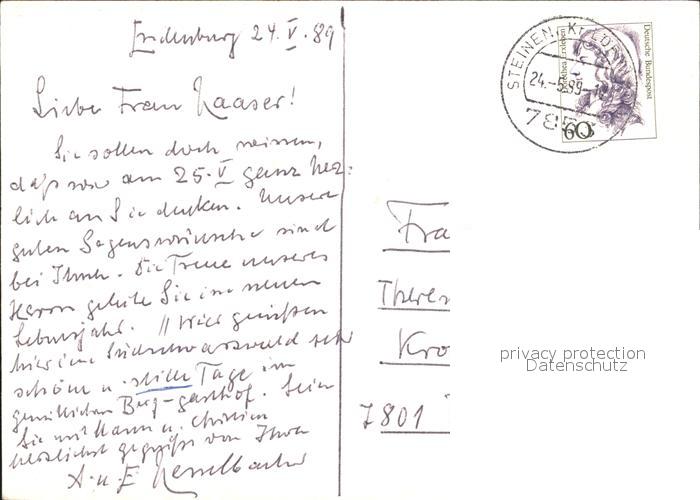 24. V. 89
Liebe Frau Kaaser!
Sie sollen doch wissen,
daß wir am 25. V ganz herz-
lich an Sie denken. Unsere
guten Segenswünsche sind
bei Ihnen. Die Treue unseres
Herrn geleite Sie im neuen
Lebensjahr. // Wir genießen
hier im Südschwarzwald sehr
schöne u. stille Tage im
gemütlichen Berg-gasthof. Seien
Sie mit Mann u.
herzlichst gegrüßt von Ihren
A. u. E.
STEINEN, KR LÖ
24.-5.89-18
785
Deutsche Bundespost
60
Fra
Theres
Kro
7801
privacy protection
Datenschutz